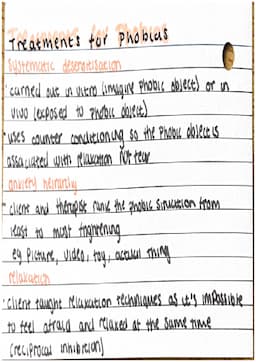 Treatments for Phobias
Systematic desensitisation
carried out in vitro (imagine phobic object) or in
vivo (exposed to phobic object)
uses counter conditioning so the phobic object is
associated with relaxation not fear
anxiety heirarchy
client and therapist rank the phobic situation from
least to most frightening
eg picture, video, toy, actual thing
relaxation
client taught relaxation techniques as it's impossible
to feel afraid and relaxed at the same time
(reciprocal inhibition)